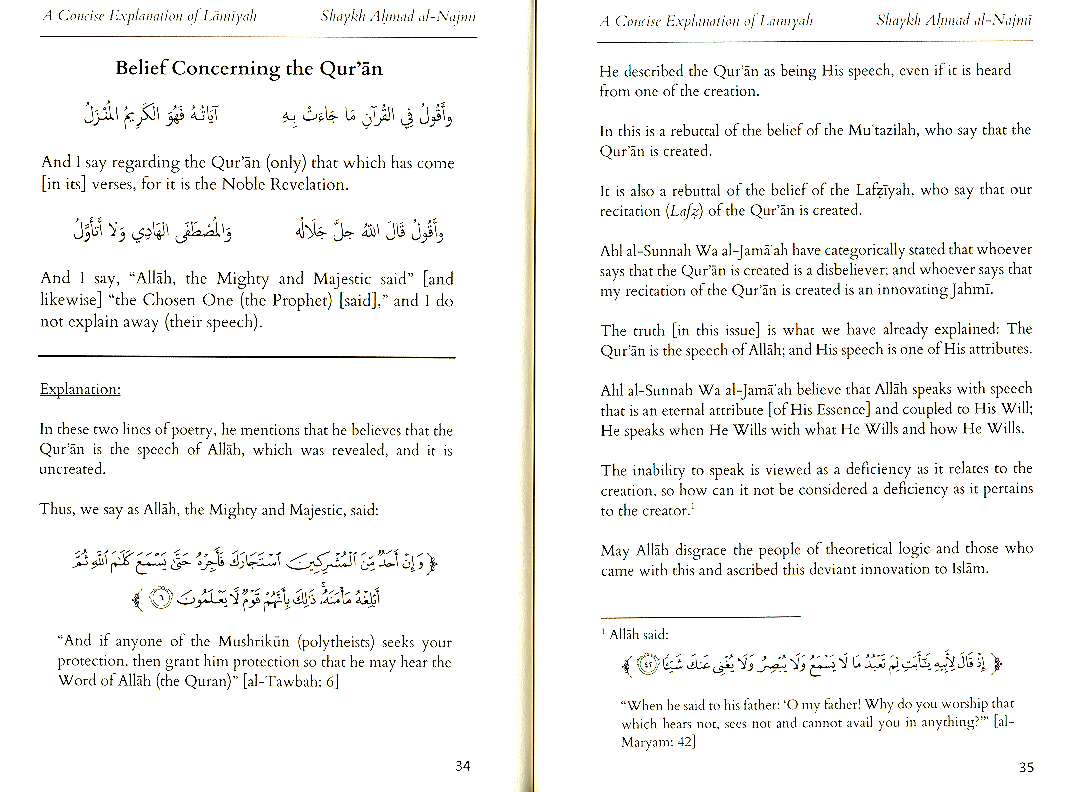 A Concise Explanation of Lāmiyah Shaykh Aḥmad al-Najmī
Belief Concerning the Qur’ān
وأَقُولُ فِي القُرآنِ مَا جَاءَتْ بِهِ آيَاتُهُ فَهُوَ الْكَرِيمُ المُنْزَلُ
And I say regarding the Qur’ān (only) that which has come
[in its] verses, for it is the Noble Revelation.
وأَقُولُ قَالَ اللهُ جلَّ جَلَالُه وَالمُصْطَفَى الْهَادِي وَلَا أَتَأَوَّلُ
And I say, “Allāh, the Mighty and Majestic said” [and
likewise] “the Chosen One (the Prophet) [said],” and I do
not explain away (their speech).
Explanation:
In these two lines of poetry, he mentions that he believes that the
Qur’ān is the speech of Allāh, which was revealed, and it is
uncreated.
Thus, we say as Allāh, the Mighty and Majestic, said:
﴿ وَإِنْ أَحَدٌ مِّنَ ٱلْمُشْرِكِينَ ٱسْتَجَارَكَ فَأَجِرْهُ حَتَّىٰ يَسْمَعَ كَلَٰمَ ٱللَّهِ ثُمَّ
أَبْلِغْهُ مَأْمَنَهُۥ ۚ ذَٰلِكَ بِأَنَّهُمْ قَوْمٌ لَّا يَعْلَمُونَ ٦ ﴾
“And if anyone of the Mushrikūn (polytheists) seeks your
protection, then grant him protection so that he may hear the
Word of Allāh (the Quran)” [al-Tawbah: 6]
34
A Concise Explanation of Lāmiyah Shaykh Aḥmad al-Najmī
He described the Qur’ān as being His speech, even if it is heard
from one of the creation.
In this is a rebuttal of the belief of the Mu‘tazilah, who say that the
Qur’ān is created.
It is also a rebuttal of the belief of the Lafẓīyah, who say that our
recitation (Lafẓ) of the Qur’ān is created.
Ahl al-Sunnah Wa al-Jamā‘ah have categorically stated that whoever
says that the Qur’ān is created is a disbeliever; and whoever says that
my recitation of the Qur’ān is created is an innovating Jahmī.
The truth [in this issue] is what we have already explained: The
Qur’ān is the speech of Allāh; and His speech is one of His attributes.
Ahl al-Sunnah Wa al-Jamā‘ah believe that Allāh speaks with speech
that is an eternal attribute [of His Essence] and coupled to His Will;
He speaks when He Wills with what He Wills and how He Wills.
The inability to speak is viewed as a deficiency as it relates to the
creation, so how can it not be considered a deficiency as it pertains
to the creator.¹
May Allāh disgrace the people of theoretical logic and those who
came with this and ascribed this deviant innovation to Islām.
¹ Allāh said:
﴿ إِذْ قَالَ لِأَبِيهِ يَٰٓأَبَتِ لِمَ تَعْبُدُ مَا لَا يَسْمَعُ وَلَا يُبْصِرُ وَلَا يُغْنِى عَنكَ شَيْـًٔا ٤٢ ﴾
“When he said to his father: ‘O my father! Why do you worship that
which hears not, sees not and cannot avail you in anything?’” [al-
Maryam: 42]
35